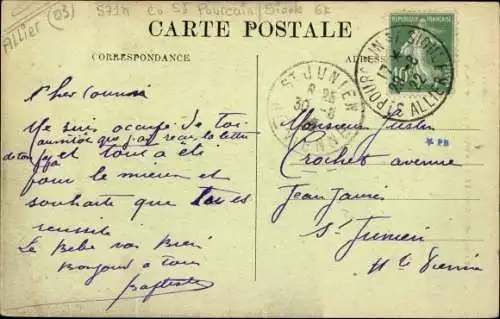 Allier (03) 5717 Co St Pourcain/Sioule 6k
CARTE POSTALE
CORRESPONDANCE
ADRESSE
REPUBLIQUE FRANÇAISE
10
ST POURCAIN S SIOULE
ALLIER
ST JUNIEN
8 25
30 - 8
Cher
Me suis occupé de toi
aussitôt que j'ai reçu la lettre
de ton et tout a été
pour le mieux et
souhaite que tu es
réussite
Le Bébé va Bien
Bonjour à tous
Baptiste
Monsieur Justin
à
Crochet avenue
Jean Jaurès
St Junien
Hte Vienne
* PB